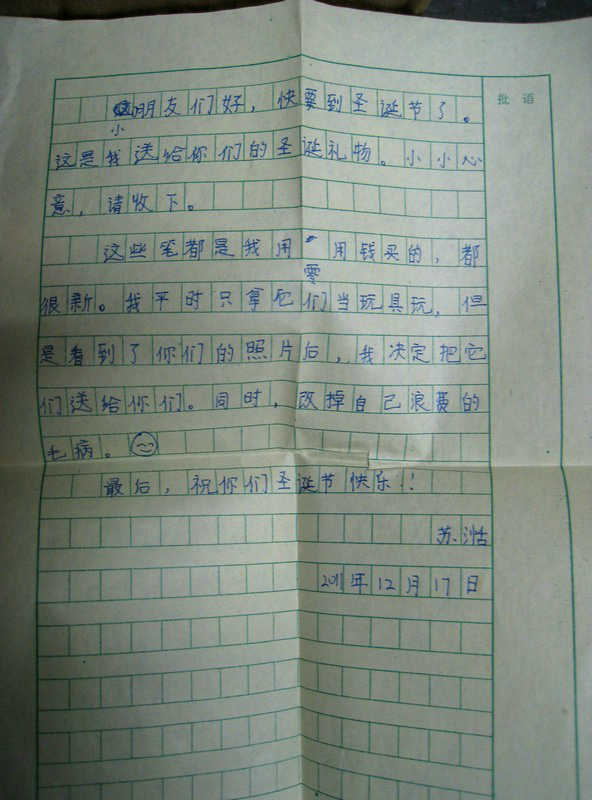 批语
小朋友们好，快要到圣诞节了。
这是我送给你们的圣诞礼物。小小心
意，请收下。
这些笔都是我用零用钱买的，都
很新。我平时只拿它们当玩具玩，但
是看到了你们的照片后，我决定把它
们送给你们。同时，改掉自己浪费的
毛病。
最后，祝你们圣诞节快乐！！
苏湉
2011年12月17日